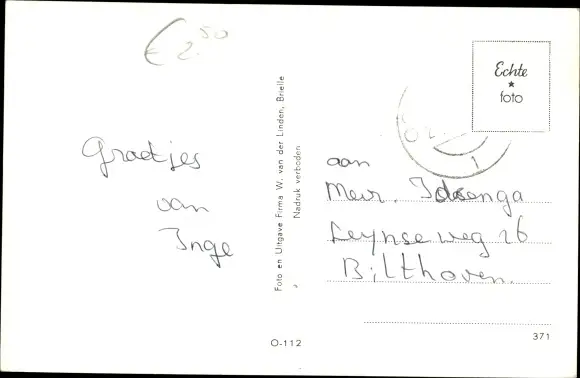 € 2.50
Echte
*
foto
Groetjes
van
Inge
Foto en Uitgave Firma W. van der Linden, Brielle
Nadruk verboden
aan
Mevr. Idsenga
Leynseweg 26
Bilthoven.
O-112
371